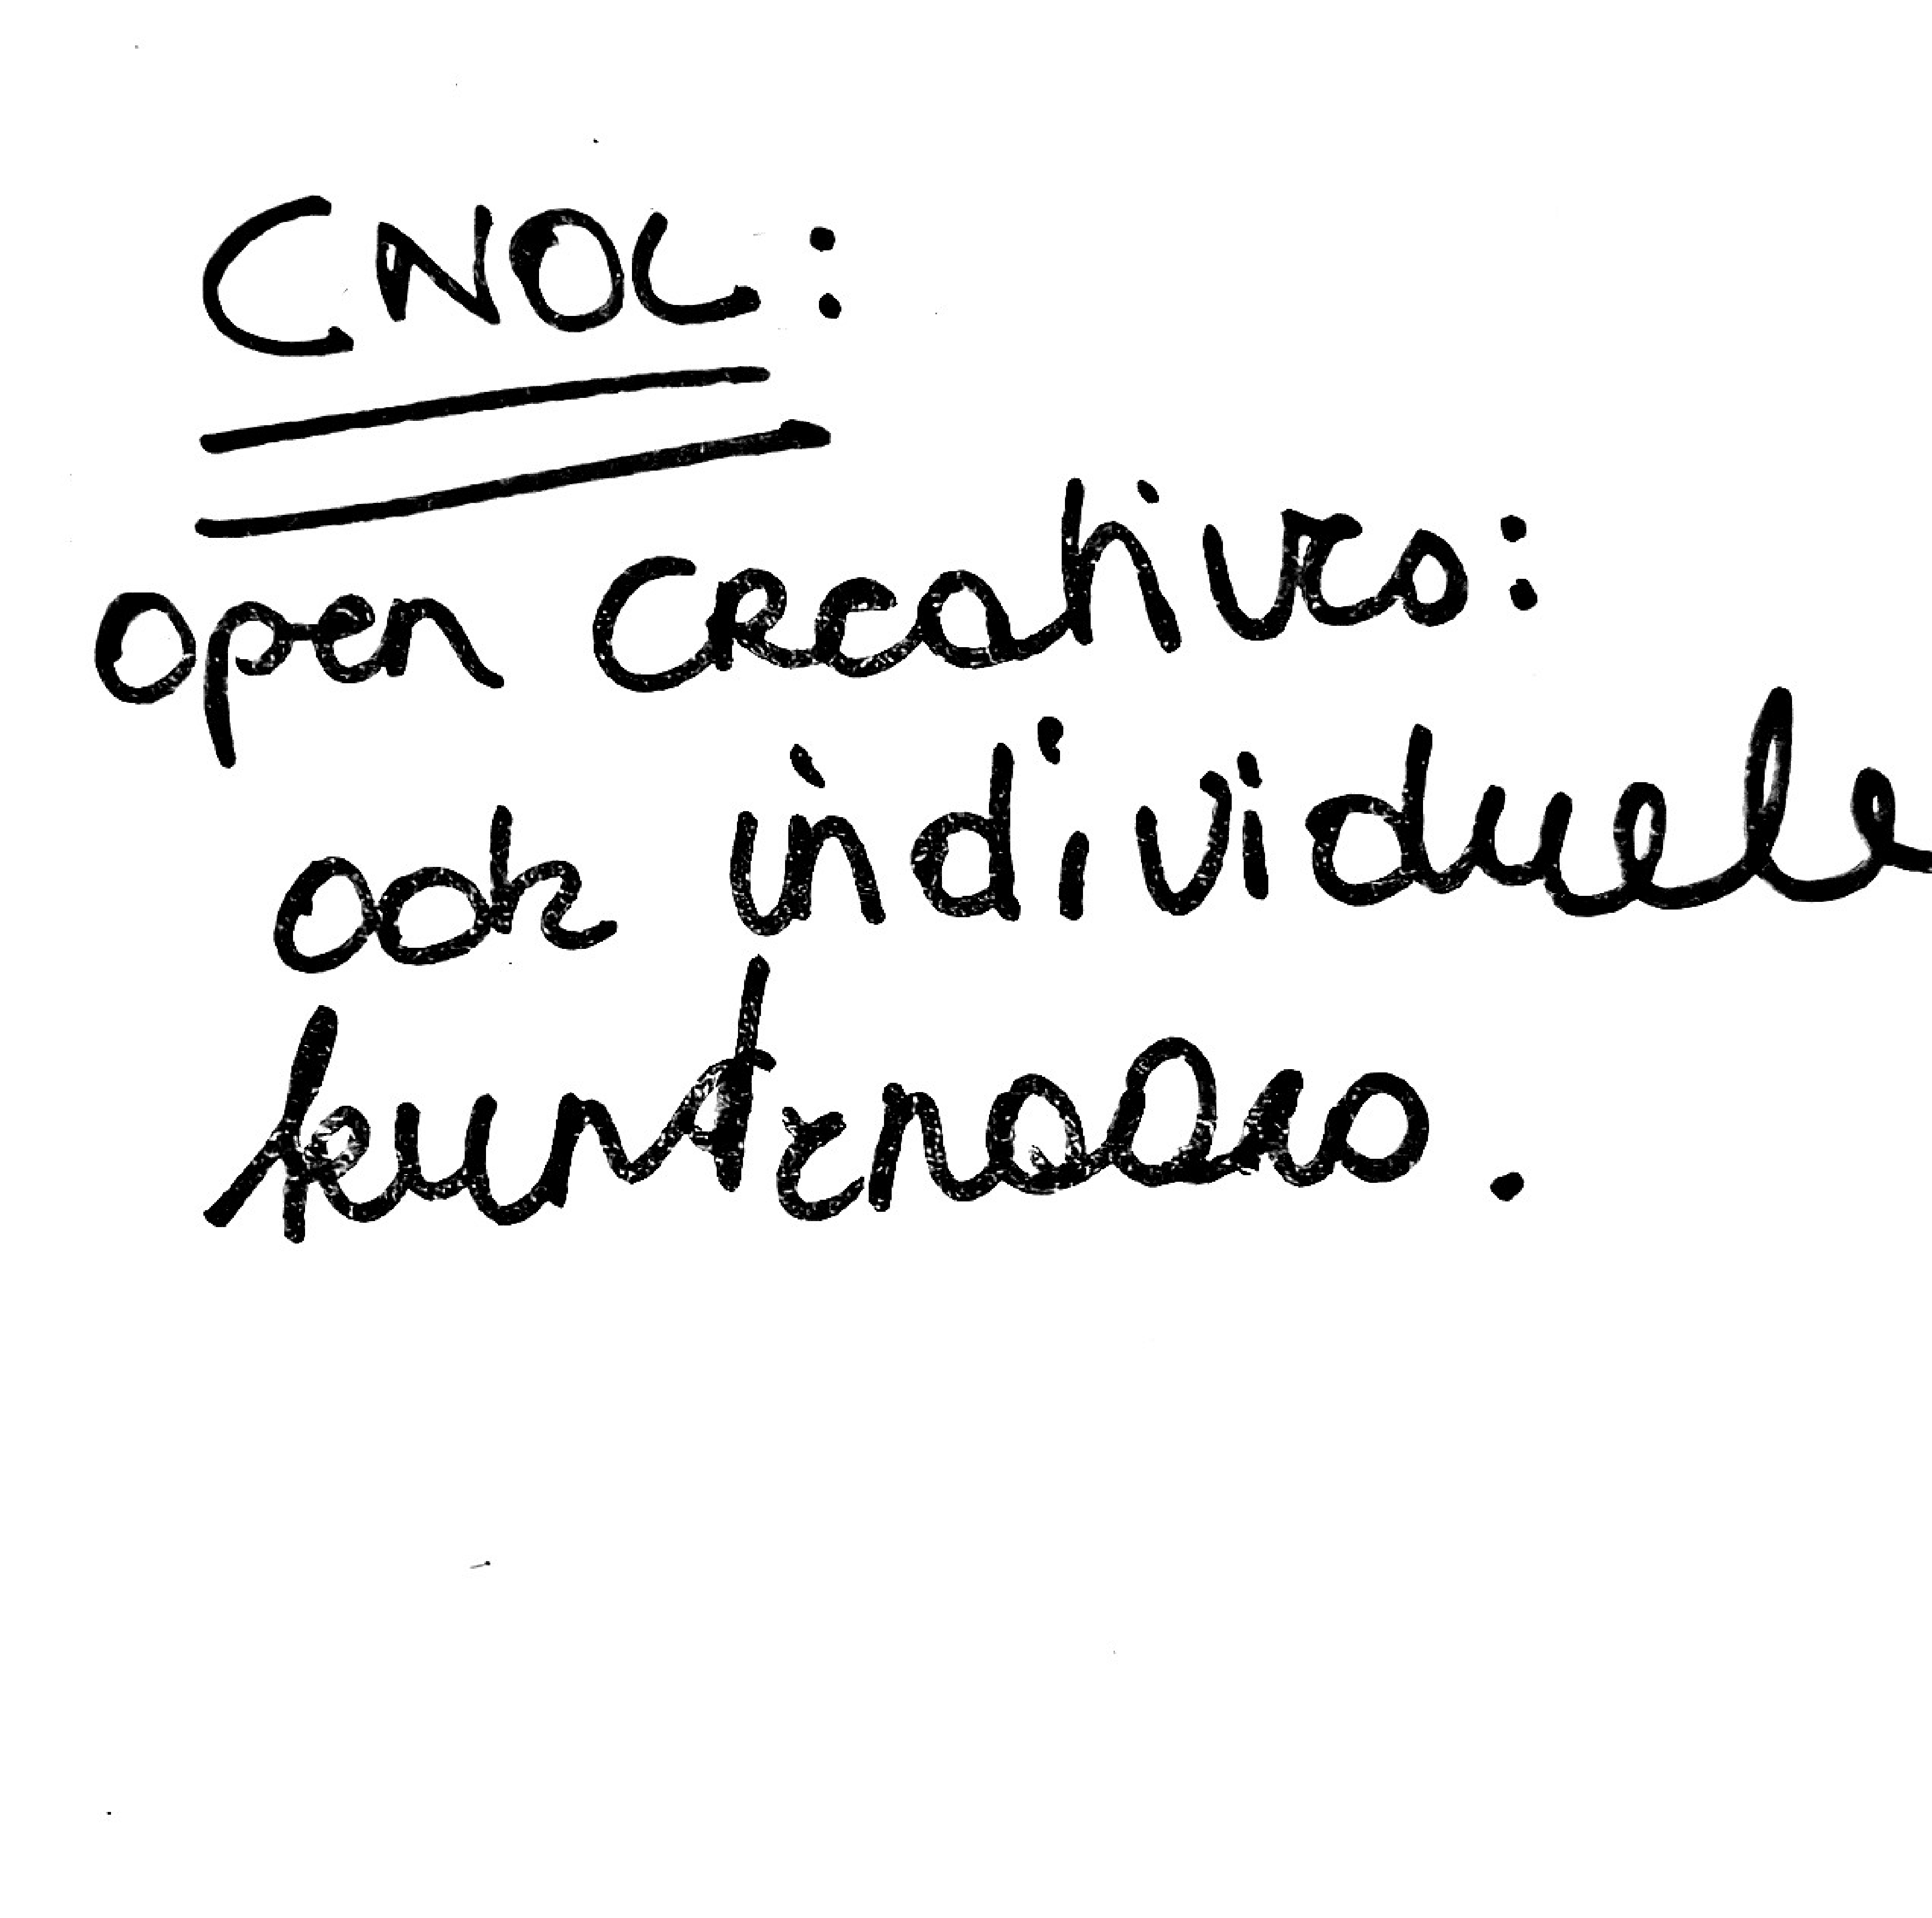 CNOL:
open creatives:
ook individuele
kunstenaars.